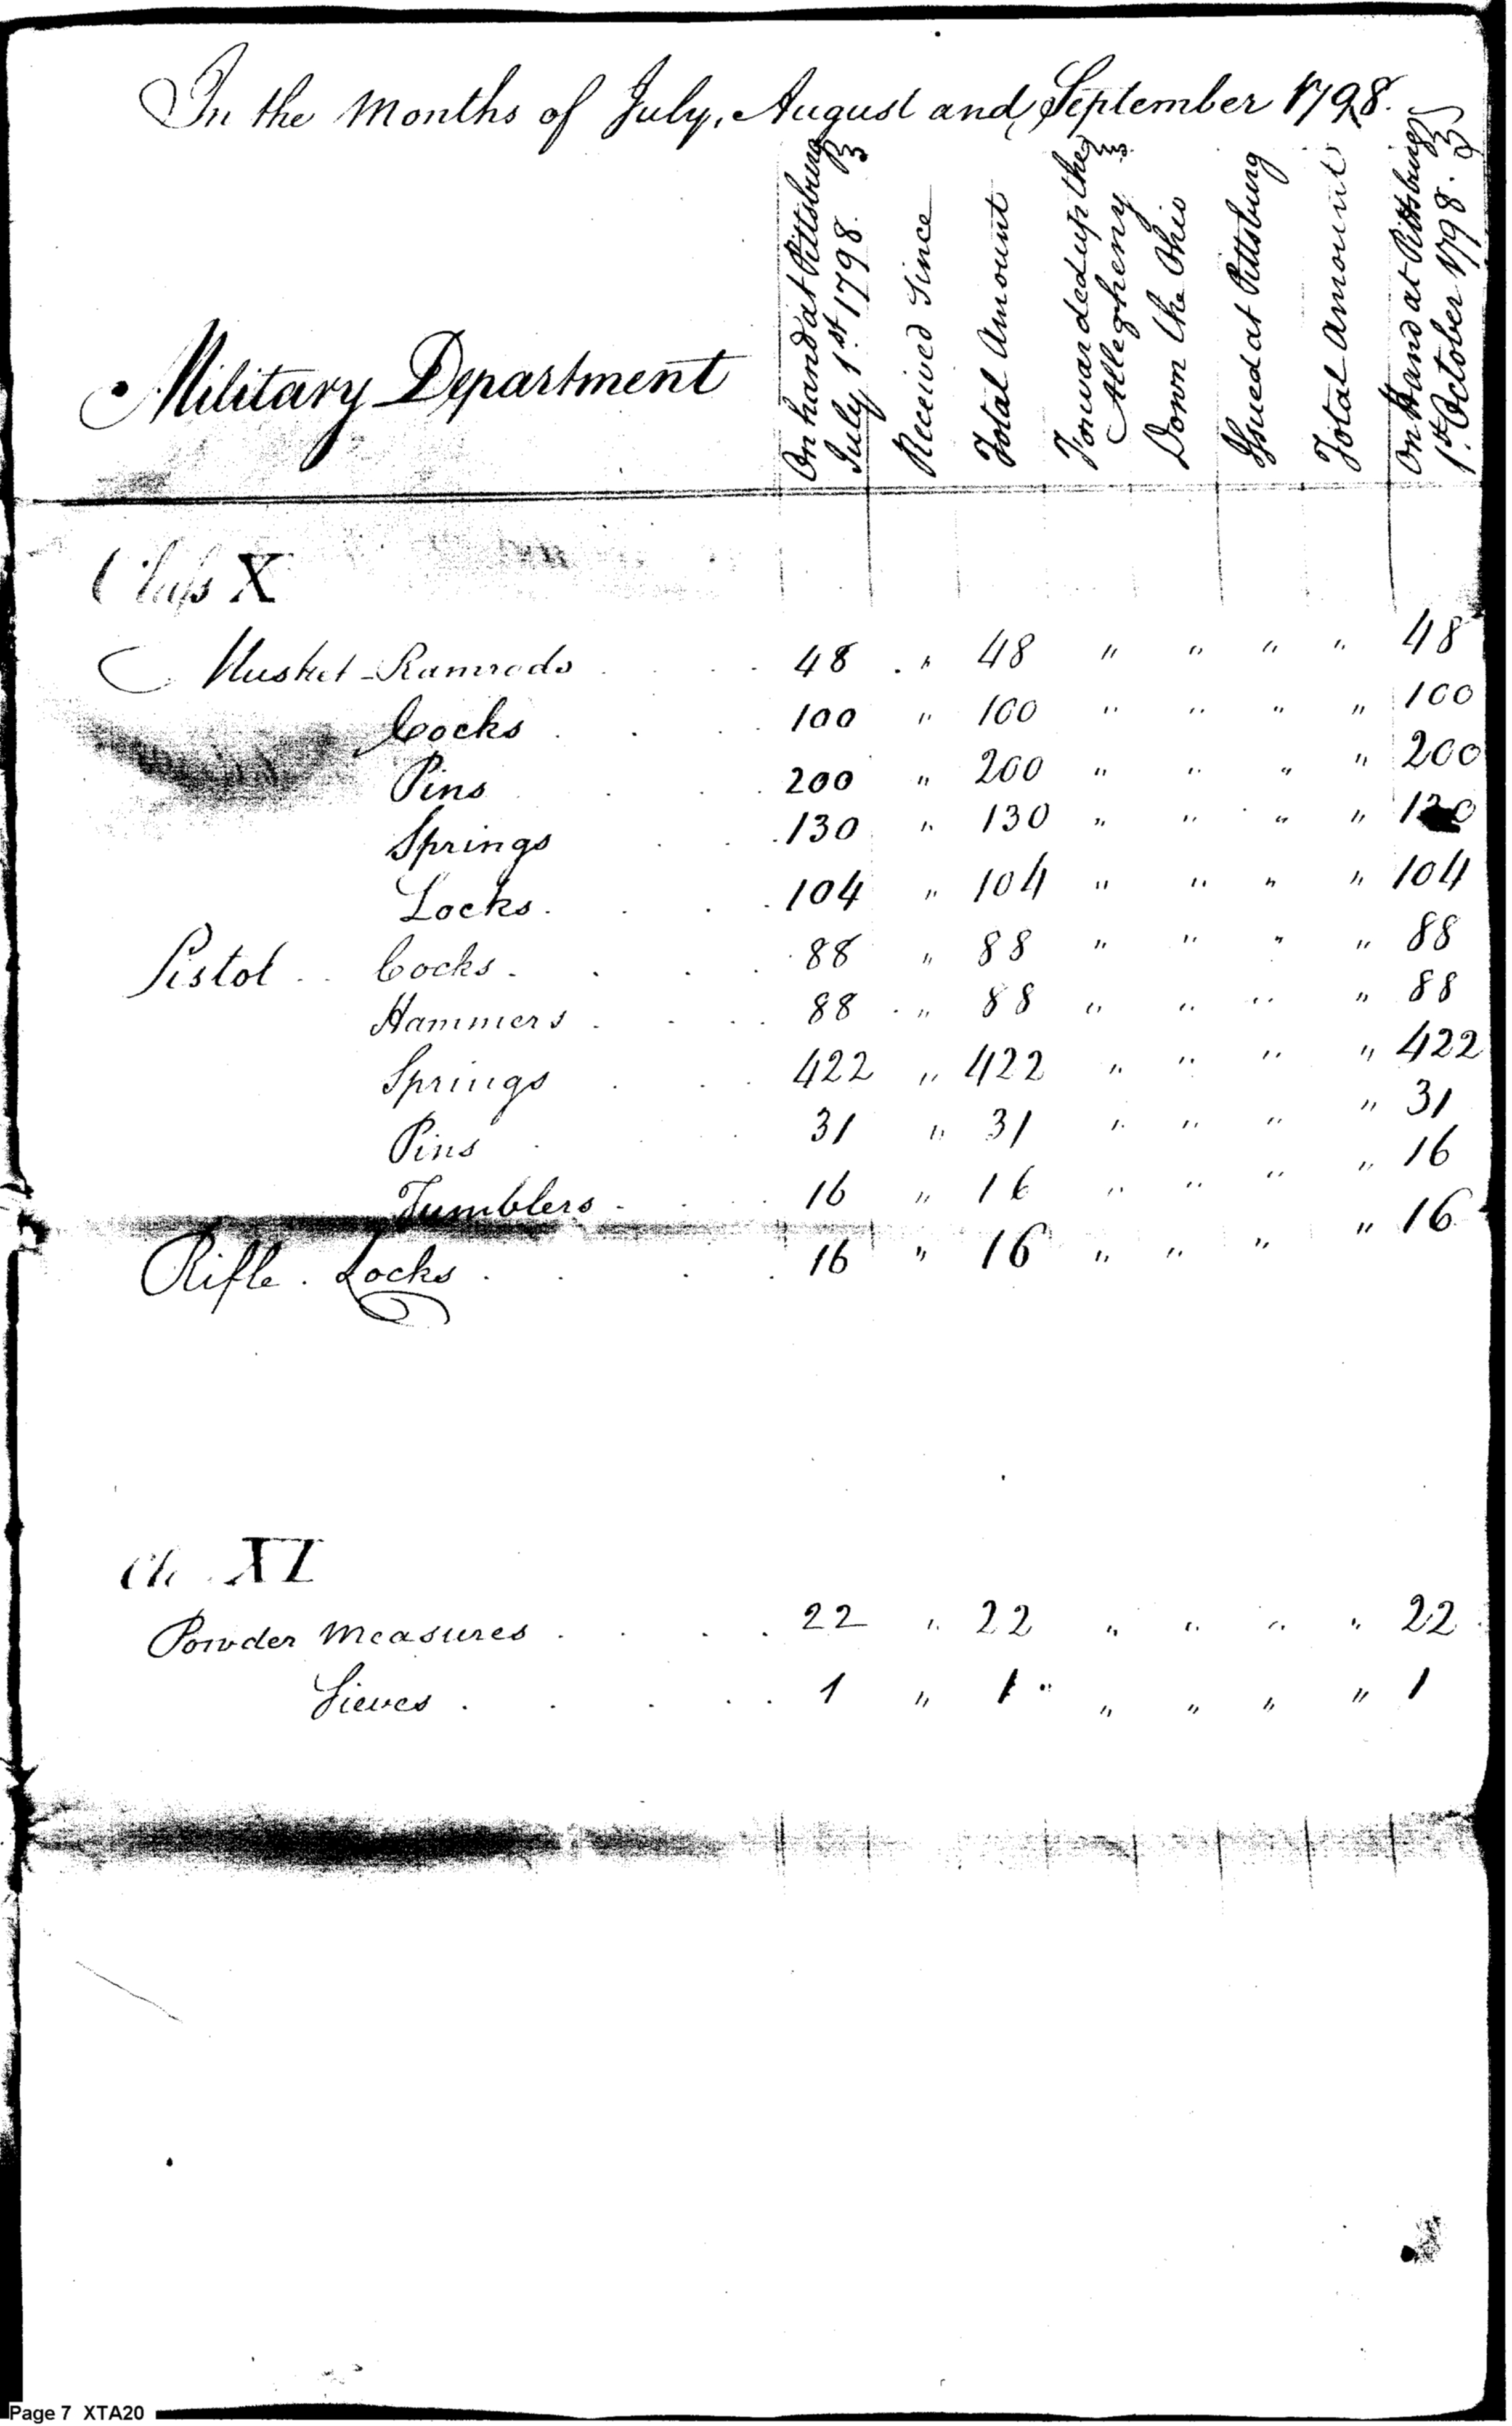 In the Months of July, August and September 1798.
Military Department
On hand at Pittsburg
July 1st 1798.
Received Since
Total Amount
Forwarded up the
Allegheny
Down the Ohio
Issued at Pittsburg
Total Amount
On Hand at Pittsburg
1st October 1798.
Class X
Musket - Ramrods . . . . 48 . " 48 " " " " 48
Cocks . . . . 100 " 100 " " " " 100
Pins . . . 200 " 200 " " " " 200
Springs . . . 130 " 130 " " " "
Locks . . . . 104 " 104 " " " " 104
Pistol . . Cocks . . . . 88 " 88 " " " " 88
Hammers . . . . 88 . " 88 " " " " 88
Springs . . . 422 " 422 " " " " 422
Pins . . . 31 " 31 " " " " 31
Tumblers . . . 16 " 16 " " " " 16
Rifle . Locks . . . . 16 " 16 " " " " 16
XI
Powder Measures . . . . 22 " 22 " " " " 22
Sieves . . . . . 1 " 1 " " " " 1
Page 7 XTA20